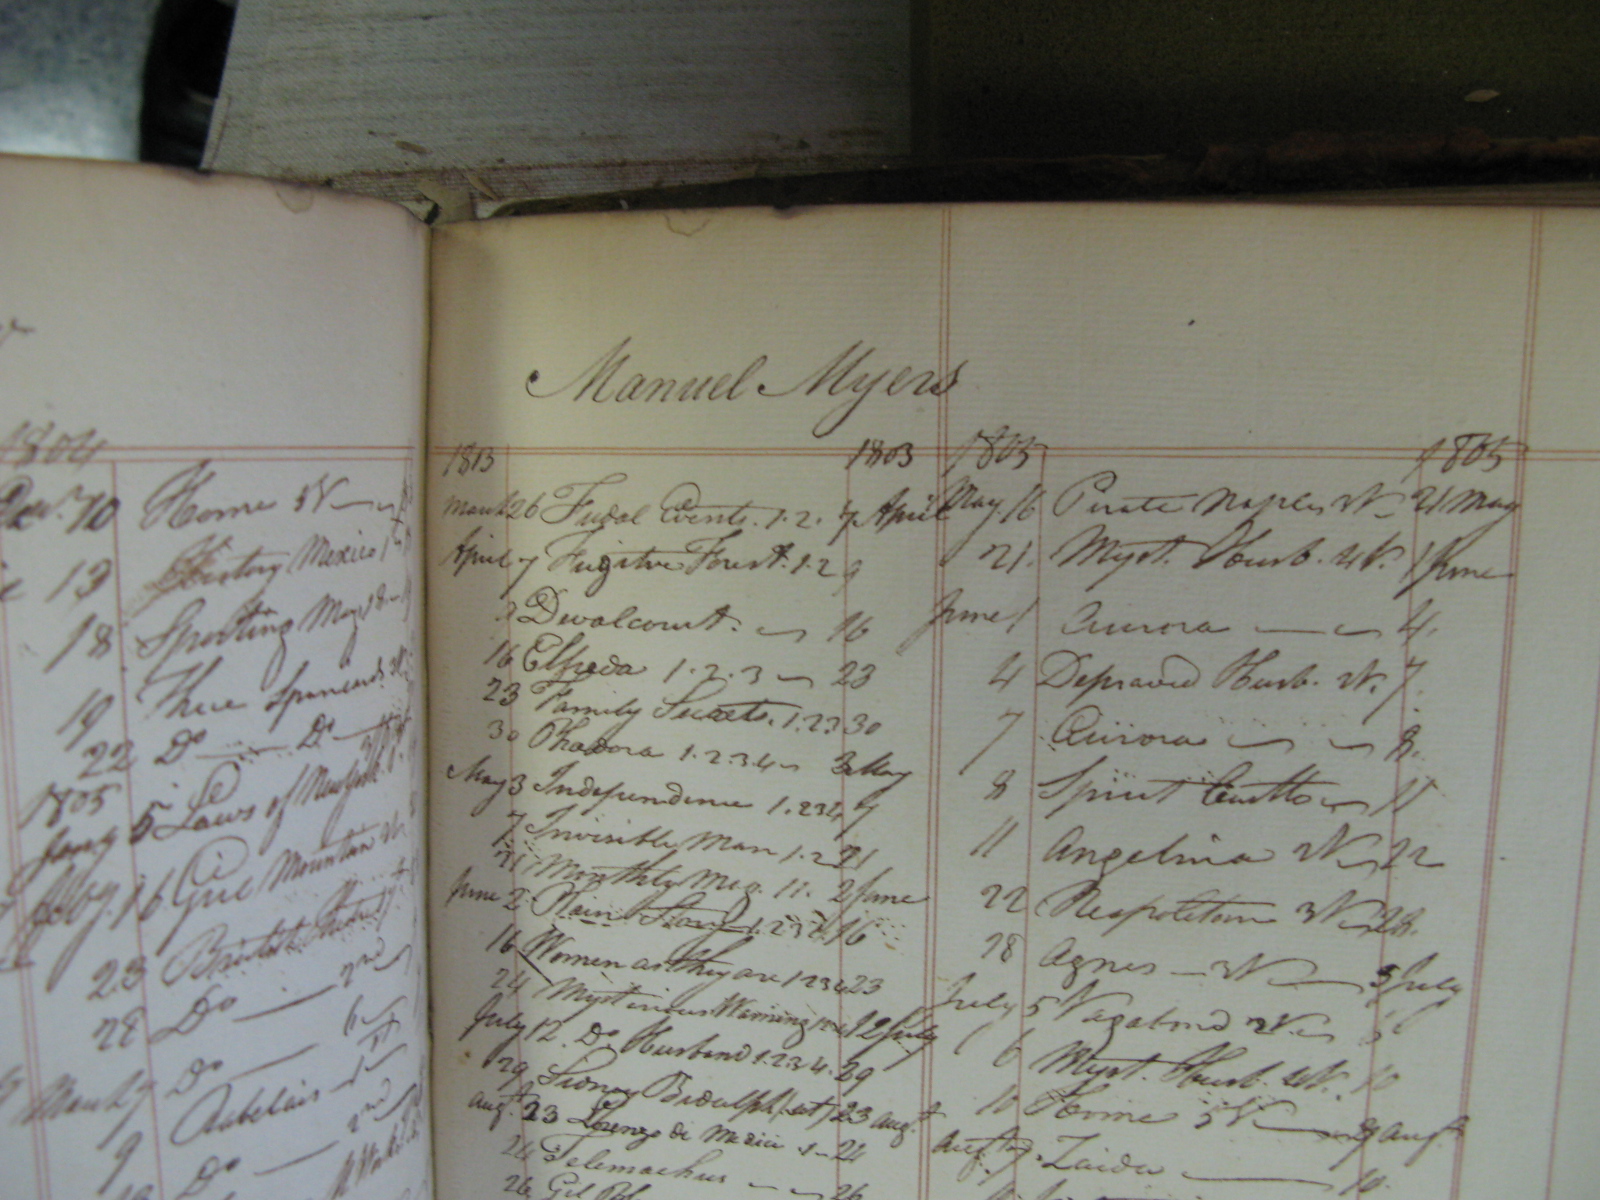 1804
10 Home 5V
13 History Mexico 1
18 Sporting Mag. 18
19 Three Spaniards 3V
22 Do Do
1805
Jany 5 Laws of New York
16 Gril Mountain
23 British
28 Do 2nd
Do
March 7 Rabelais 1V
9 Do 2nd
Manuel Myers
1813 1803
March 26 Fudal Events. 1.2. 7 April
April 7 Fugitive Forest. 1.2 9
9 Devalcourt. 16
16 Elfreda 1.2.3 23
23 Family Secrets. 1.2.3 30
30 Phadora 1.2.3.4 3 May
May 3 Independence 1.234 7
7 Invisible Man 1.2 21
21 Monthly Mag. 11. 2 June
June 2 Plain 1.2.3.4 16
16 Women as they are 1234 23
24 Mysterious Warning 12 July
July 12. Do Husband 1.2.3.4. 29
29 Sidney Bidulph 23 augt
augt. 23 Lorenzo di Medici 1 24
24 Telemachus 26
26 Gil Bl
1805 1805
May 16 Pirate Naples 21 May
21. Myst. Husb. 4V. 1 June
June 1 Aurora 4.
4 Depraved Husb. 2V. 7.
7 Aurora 8.
8 Spirit 11
11 Angelina 2V 22
22 Neapolitan 3V 28.
28 Agnes 3V 5 July
July 5 Vagabond 2V. 6
6 Myst. Husb. 4V. 10
10 Home 5V 9 augt
augt 9. Zaida 10.